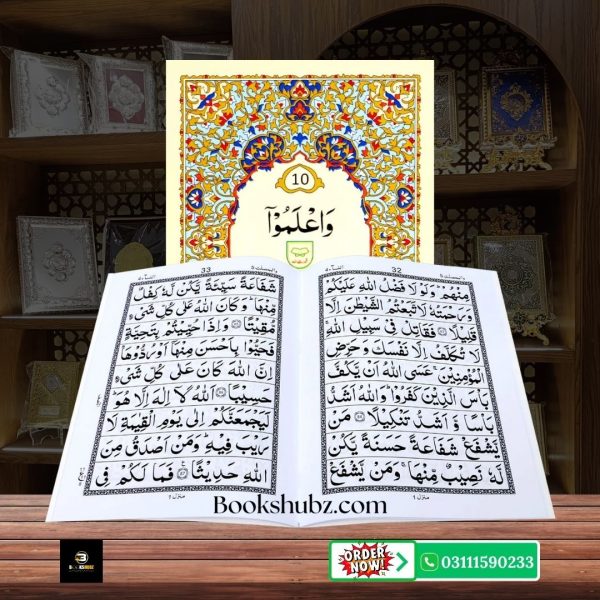 10
وَاعْلَمُوْٓا
32
مِنْهُمْ ؕ وَلَوْ لَا فَضْلُ اللّٰهِ عَلَيْكُمْ
وَرَحْمَتُهٗ لَاتَّبَعْتُمُ الشَّيْطٰنَ اِلَّا
قَلِيْلًا ۝ فَقَاتِلْ فِيْ سَبِيْلِ اللّٰهِ ۚ
لَا تُكَلَّفُ اِلَّا نَفْسَكَ وَحَرِّضِ
الْمُؤْمِنِيْنَ ۚ عَسَى اللّٰهُ اَنْ يَّكُفَّ
بَاْسَ الَّذِيْنَ كَفَرُوْا ؕ وَاللّٰهُ اَشَدُّ
بَاْسًا وَّ اَشَدُّ تَنْكِيْلًا ۝ مَنْ
يَّشْفَعْ شَفَاعَةً حَسَنَةً يَّكُنْ
لَّهٗ نَصِيْبٌ مِّنْهَا ۚ وَمَنْ يَّشْفَعْ
منزل ١
33
شَفَاعَةً سَيِّئَةً يَّكُنْ لَّهٗ كِفْلٌ
مِّنْهَا ؕ وَكَانَ اللّٰهُ عَلٰى كُلِّ شَيْءٍ
مُّقِيْتًا ۝ وَاِذَا حُيِّيْتُمْ بِتَحِيَّةٍ
فَحَيُّوْا بِاَحْسَنَ مِنْهَاۤ اَوْ رُدُّوْهَا ؕ
اِنَّ اللّٰهَ كَانَ عَلٰى كُلِّ شَيْءٍ
حَسِيْبًا ۝ اَللّٰهُ لَاۤ اِلٰهَ اِلَّا هُوَ ؕ
لَيَجْمَعَنَّكُمْ اِلٰى يَوْمِ الْقِيٰمَةِ لَا
رَيْبَ فِيْهِ ؕ وَمَنْ اَصْدَقُ مِنَ
اللّٰهِ حَدِيْثًا ۝ فَمَا لَكُمْ فِي
منزل ١
Bookshubz.com
ORDER NOW!
03111590233